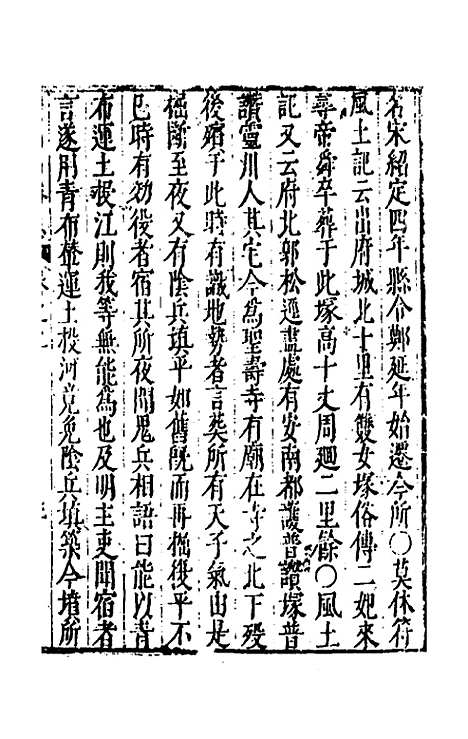 名宋紹定四年縣令鄭延年始遷今所〇莫休符
風土記云出府城北十里有雙女塚俗傳二妃來
尋帝舜卒葬于此塚高十丈周迴二里餘〇風土
記又云府北郭松逕盡處有安南都護普讚塚普
讚靈川人其宅今爲聖壽寺有廟在寺之北下歿
後殯于此時有識地勢者言葬所有天子氣由是
掘斷至夜又有陰兵填平如舊旣而再掘後平不
已時有効役者宿其所夜聞鬼兵相語曰能以青
布運土投江則我等無能爲也及明主吏聞宿者
言遂用青布壘運土投河竟免陰兵填築今堆所